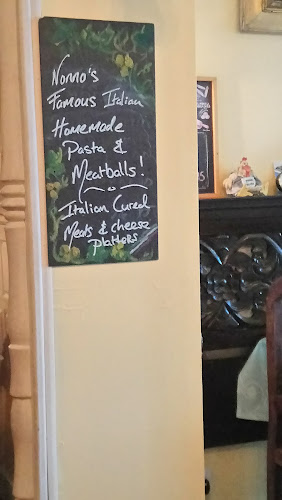 Nonno's
Famous Italian
Homemade
Pasta &
Meatballs!
Italian Cured
Meats & cheese
Platters